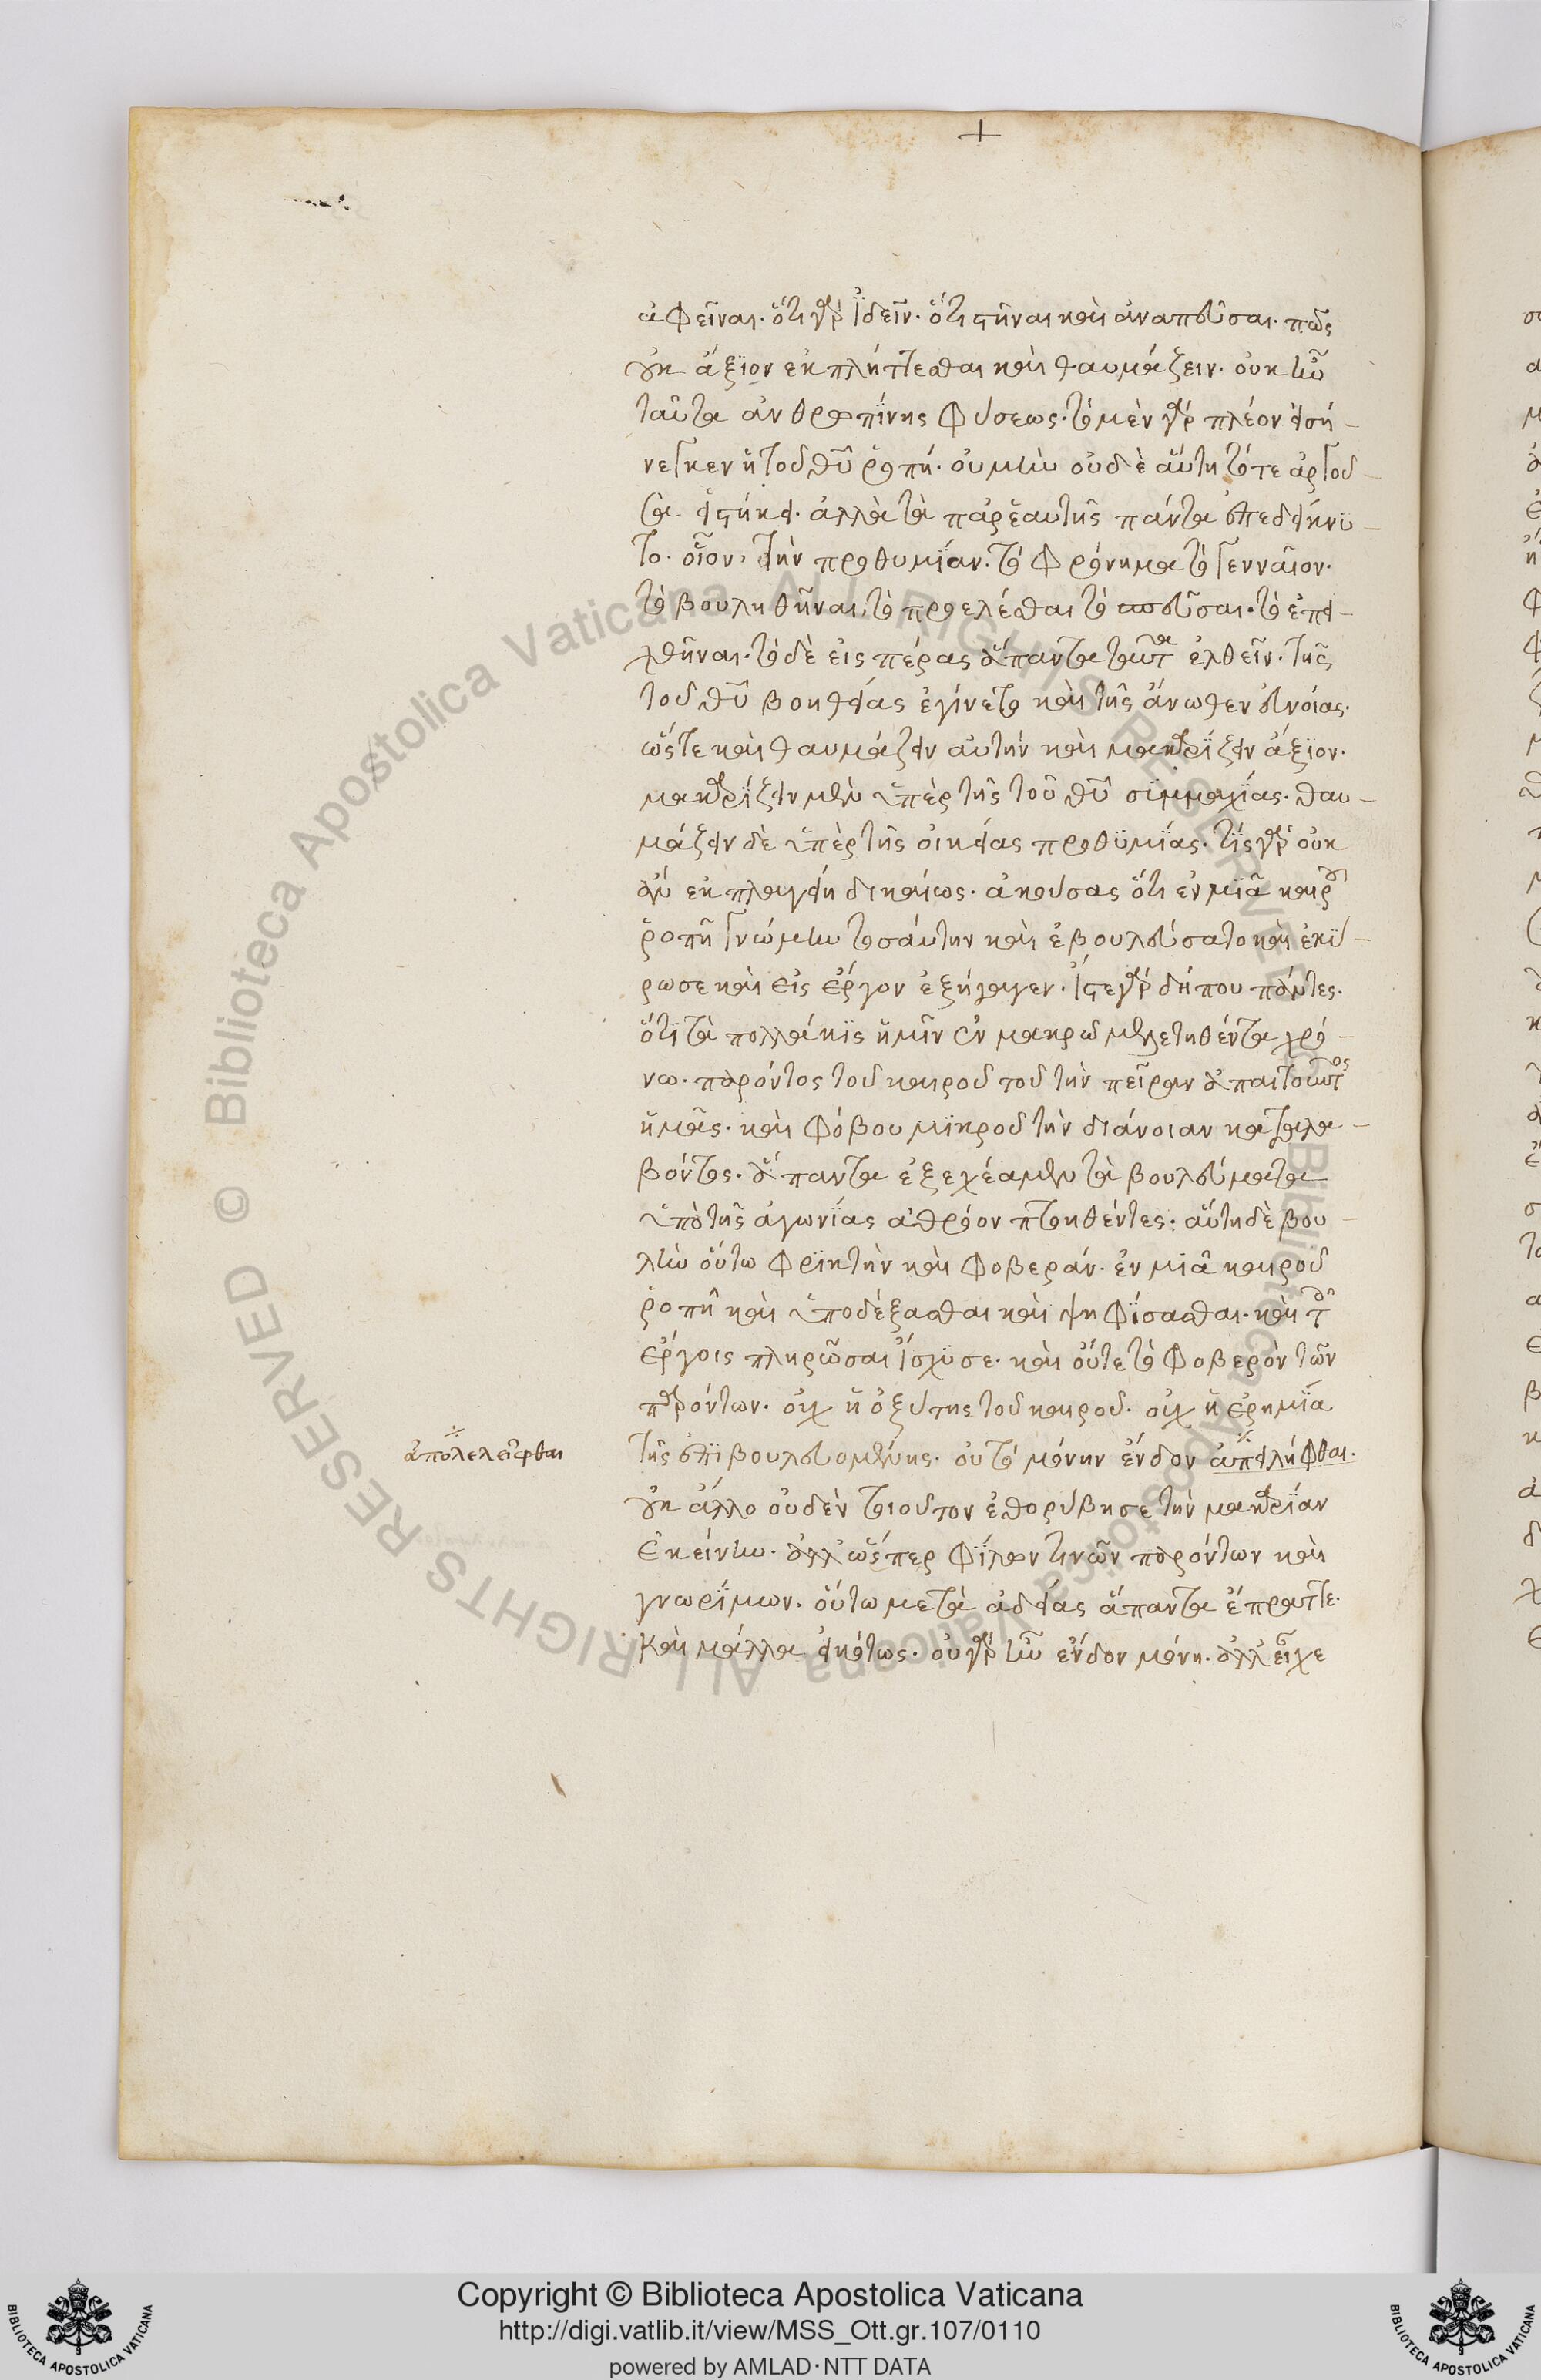 ἀφεῖναι· ὅτι γὰρ ἰδεῖν· ὅτι στῆναι καὶ ἀναπνεῦσαι· πῶς
οὐκ ἄξιον ἐκπλήττεσθαι καὶ θαυμάζειν· οὐκ ἦν
ταῦτα ἀνθρωπίνης φύσεως· τὸ μὲν γὰρ πλέον εἰσή-
νεγκεν ἡ τοῦ θῦ ῥοπή· οὐ μὴν οὐδὲ αὕτη τότε ἀργοῦ-
σα εἱστήκει· ἀλλὰ τὰ παρ' ἑαυτῆς πάντα ἐπεδείκνυ-
το· οἷον, τὴν προθυμίαν· τὸ φρόνημα τὸ γενναῖον·
τὸ βουληθῆναι· τὸ προελέσθαι τὸ σπεῦσαι· τὸ ἐπει-
χθῆναι· τὸ δὲ εἰς πέρας ἅπαντα ταῦτα ἐλθεῖν· τῆς
τοῦ θῦ βοηθείας ἐγίνετο καὶ τῆς ἄνωθεν εὐνοίας·
ὥστε καὶ θαυμάζειν αὐτὴν καὶ μακαρίζειν ἄξιον·
μακαρίζειν μὲν ὑπὲρ τῆς τοῦ θῦ συμμαχίας· θαυ-
μάζειν δὲ ὑπὲρ τῆς οἰκείας προθυμίας· τίς γὰρ οὐκ
ἂν ἐκπλαγείη δικαίως· ἀκούσας ὅτι ἐν μιᾶ καιροῦ
ῥοπῆ γνώμην τοσαύτην καὶ ἐβουλεύσατο καὶ ἐκύ-
ρωσε καὶ εἰς ἔργον ἐξήγαγεν· ἴστε γὰρ δήπου πάντες·
ὅτι τὰ πολλάκις ἡμῖν ἐν μακρῶ μελετηθέντα χρό-
νω· παρόντος τοῦ καιροῦ τοῦ τὴν πεῖραν ἀπαιτοῦντος
ἡμᾶς· καὶ φόβου μικροῦ τὴν διάνοιαν καταλα-
βόντος· ἅπαντα ἐξεχέαμεν τὰ βουλεύματα
ὑπὸ τῆς ἀγωνίας ἀθρόον πτοηθέντες· αὕτη δὲ βου-
λὴν οὕτω φρικτὴν καὶ φοβεράν· ἐν μιᾶ καιροῦ
ῥοπῆ καὶ ὑποδέξασθαι καὶ ψηφίσασθαι· καὶ τοῖς
ἔργοις πληρῶσαι ἴσχυσε· καὶ οὔτε τὸ φοβερὸν τῶν
παρόντων· οὐχ ἡ ὀξύτης τοῦ καιροῦ· οὐχ ἡ ἐρημία
τῆς ἐπιβουλευομένης· οὐ τὸ μόνην ἔνδον ἀπειλήφθαι·
ἀπολελεῖφθαι
οὐκ ἄλλο οὐδὲν τοιοῦτον ἐθορύβησε τὴν μακαρίαν
ἐκείνην· ἀλλ' ὥσπερ φίλων τινῶν παρόντων καὶ
γνωρίμων· οὕτω μετὰ ἀδείας ἅπαντα ἔπραττε·
καὶ μάλλα εἰκότως· οὐ γὰρ ἦν ἔνδον μόνη· ἀλλ' εἶχε
Copyright © Biblioteca Apostolica Vaticana
http://digi.vatlib.it/view/MSS_Ott.gr.107/0110
powered by AMLAD·NTT DATA
BIBLIOTECA APOSTOLICA VATICANA
BIBLIOTECA APOSTOLICA VATICANA
© Biblioteca Apostolica Vaticana ALL RIGHTS RESERVED
© Biblioteca Apostolica Vaticana ALL RIGHTS RESERVED